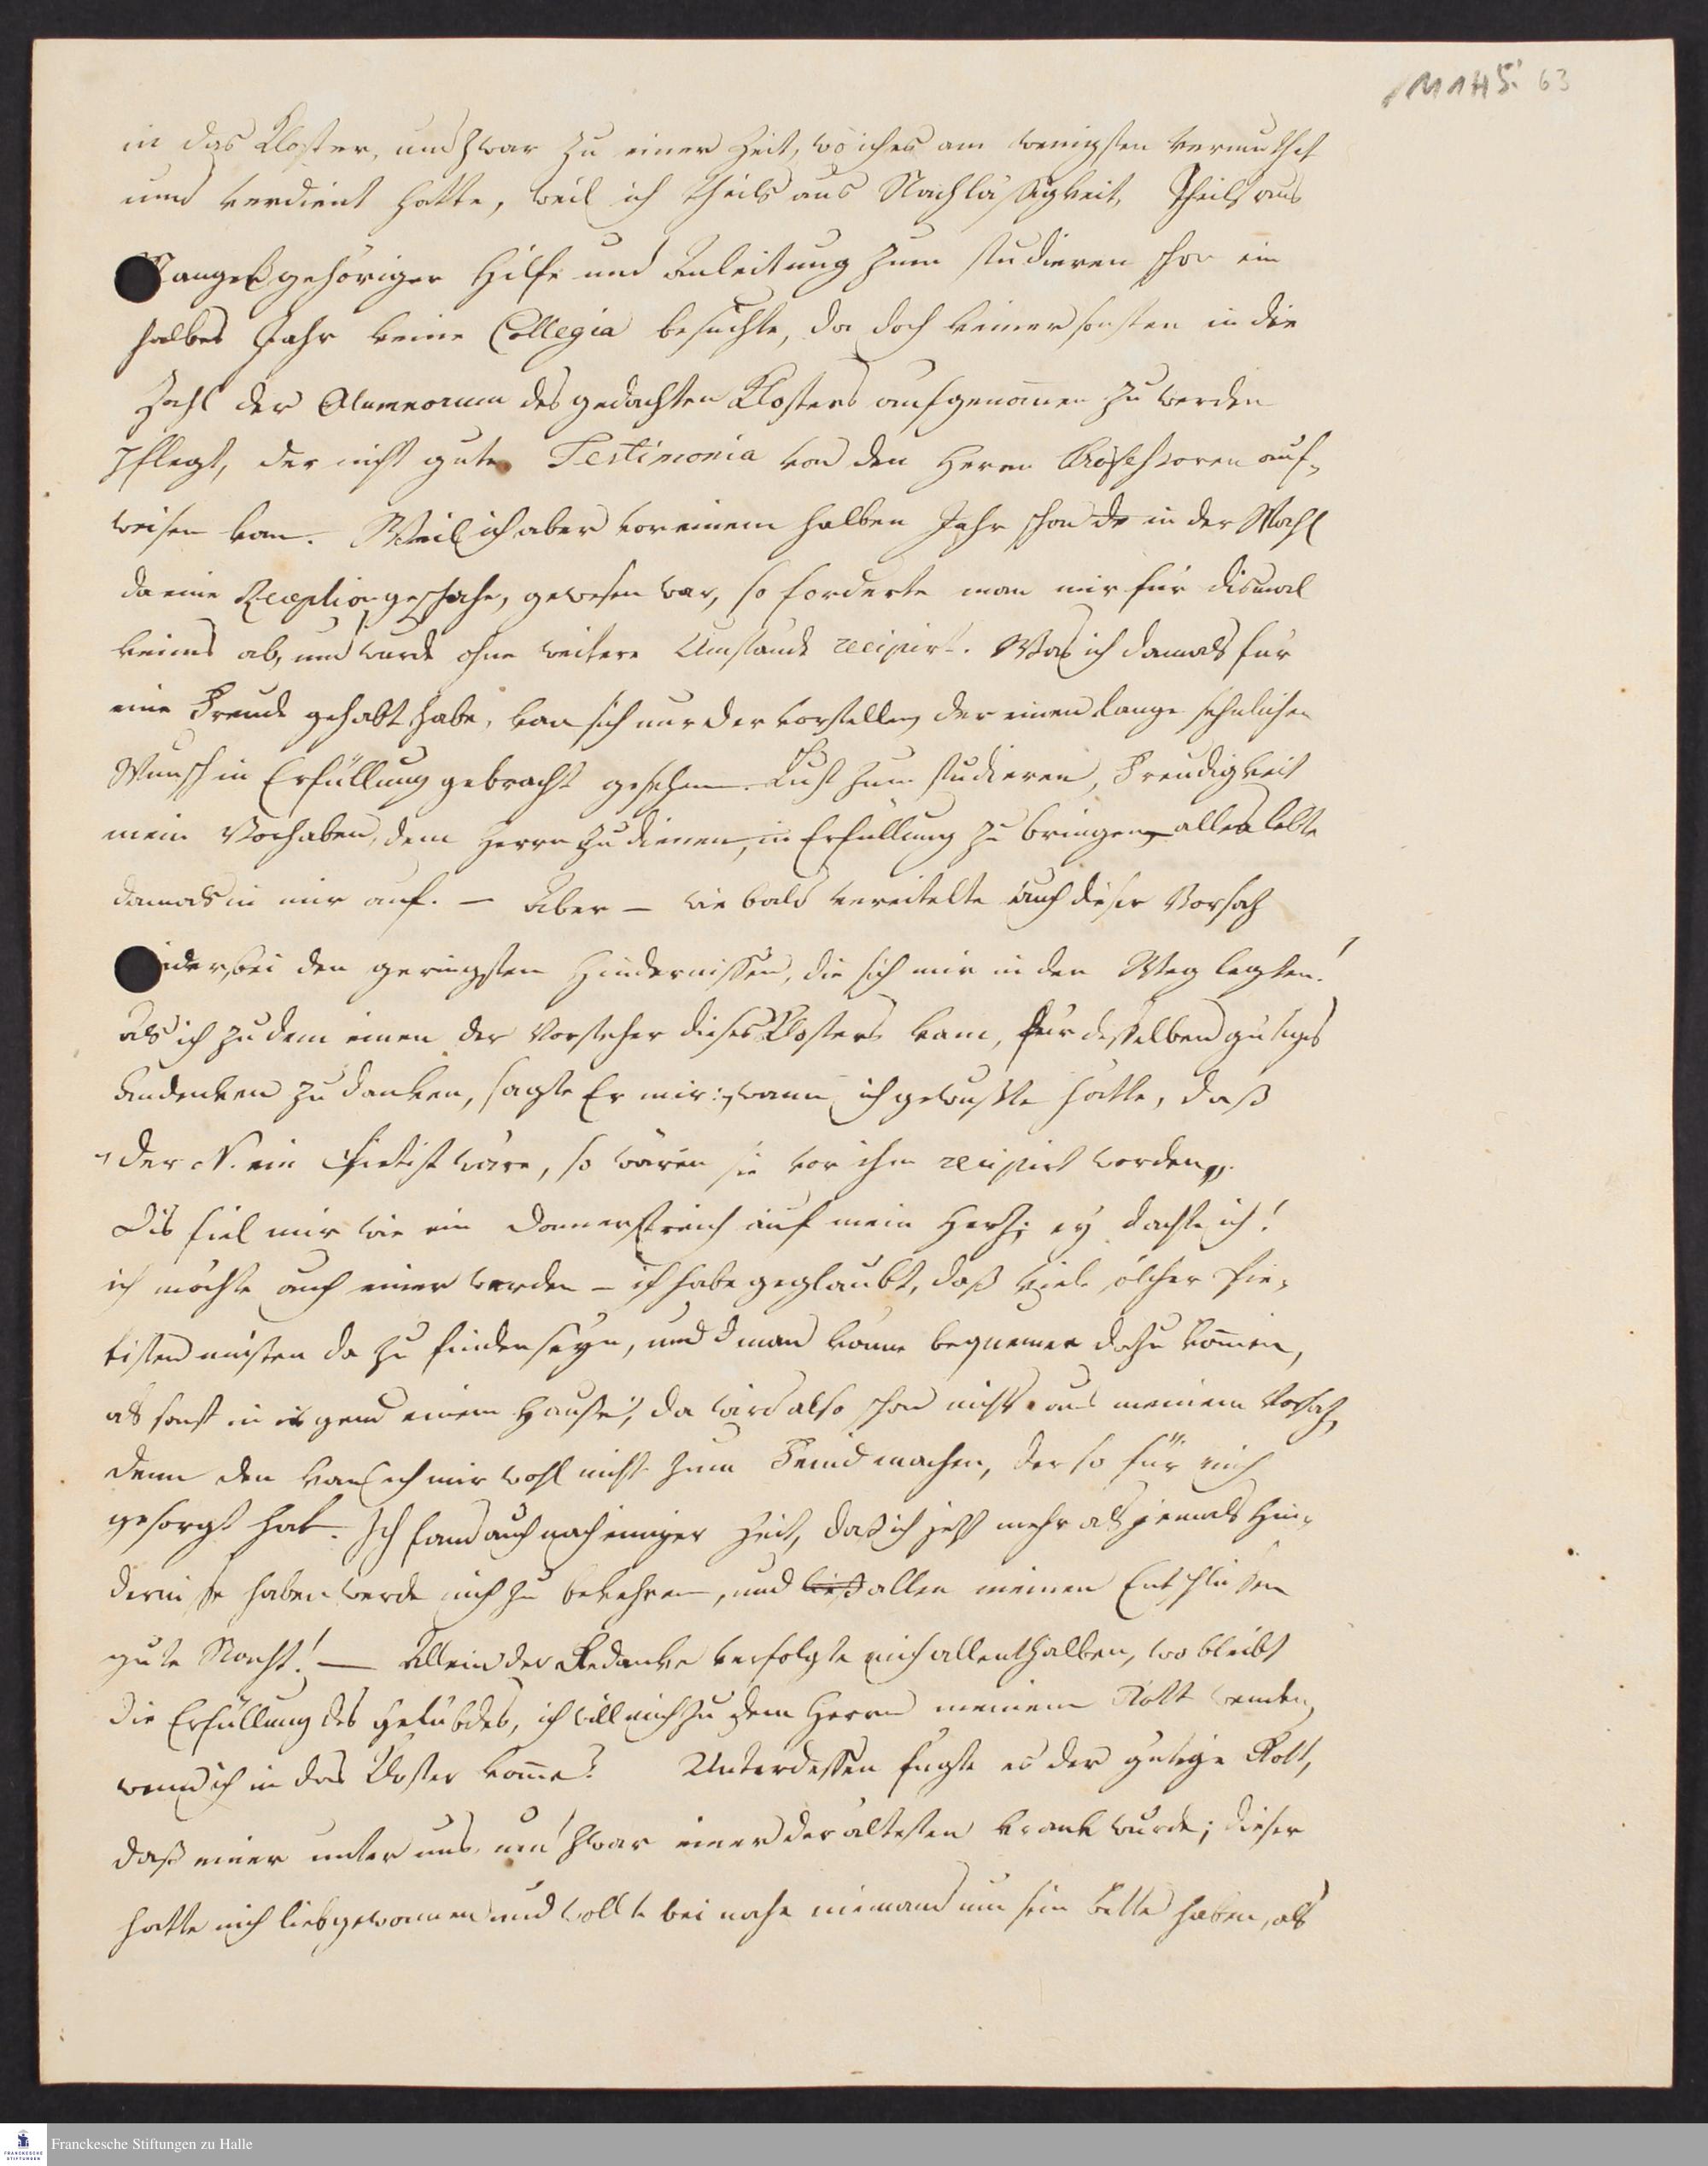 1 M 1 H 5: 63
in das Kloster, und zwar zu einer Zeit, wo ich es am wenigsten vermuthet
und verdient hatte, weil ich theils aus Nachläßigkeit, theils aus
Mangel gehöriger Hilfe und Anleitung zum studieren schon ein
halbes Jahr keine Collegia besuchte, da doch keiner sonsten in die
Zahl der Alumnorum des gedachten Klosters aufgenom̄en zu werden
pflegt, der nicht gute Testimonia von den Herrn Professoren auf-
weisen kan. Weil ich aber vor einem halben Jahr schon in der Wahl
da eine Reception geschahe, gewesen war, so forderte man mir für dismal
keines ab, und wurde ohne weitere Umstände recipirt. Was ich damals für
eine Freude gehabt habe, kan sich nur der vorstellen, der einen lange sehnlichen
Wunsch in Erfüllung gebracht gesehen. Lust zum studieren, Freudigkeit
mein Vorhaben, dem Herrn zu dienen, in Erfüllung zu bringen, alles lebte
damals in mir auf. — Aber — wie bald vereitelte auch dieser Vorsaz
wieder, bei den geringsten Hindernissen, die sich mir in den Weg legten!
Als ich zu dem einen der Vorsteher dieses Klosters kam, für desselben gütiges
Andenken zu danken, sagte Er mir: wann ich gewußt hätte, daß
der N. ein Pietist wäre, so wären sie vor ihm recipirt worden.
Dis fiel mir wie ein Donnerstreich auf mein Herz; ey dachte ich!
ich möchte auch einer werden — ich habe geglaubt, daß viele solcher Pie-
tisten müsten da zu finden seyn, und man könne bequemer dazu kom̄en,
als sonst in irgend einem Hause, da wird also schon nichts aus meinem Vorsaz,
denn den kan ich mir wohl nicht zum Feind machen, der so für mich
gesorgt hat. Ich fand auch nach einiger Zeit, daß ich jezt mehr als jemals Hin-
dernisse haben werde mich zu bekehren, und ließ allen meinen Entschlüssen
gute Nacht! — Allein der Gedanke verfolgte mich allenthalben, wo bleibt
die Erfüllung des Gelübdes, ich will mich zu dem Herrn meinem Gott wenden,
wenn ich in das Kloster kom̄e? Unterdessen fügte es der gütige Gott,
daß einer unter uns, und zwar einer der ältesten krank wurde; dieser
hatte mich liebgewonnen und wollte bei nahe niemand um sein Bette haben, als
Franckesche Stiftungen zu Halle